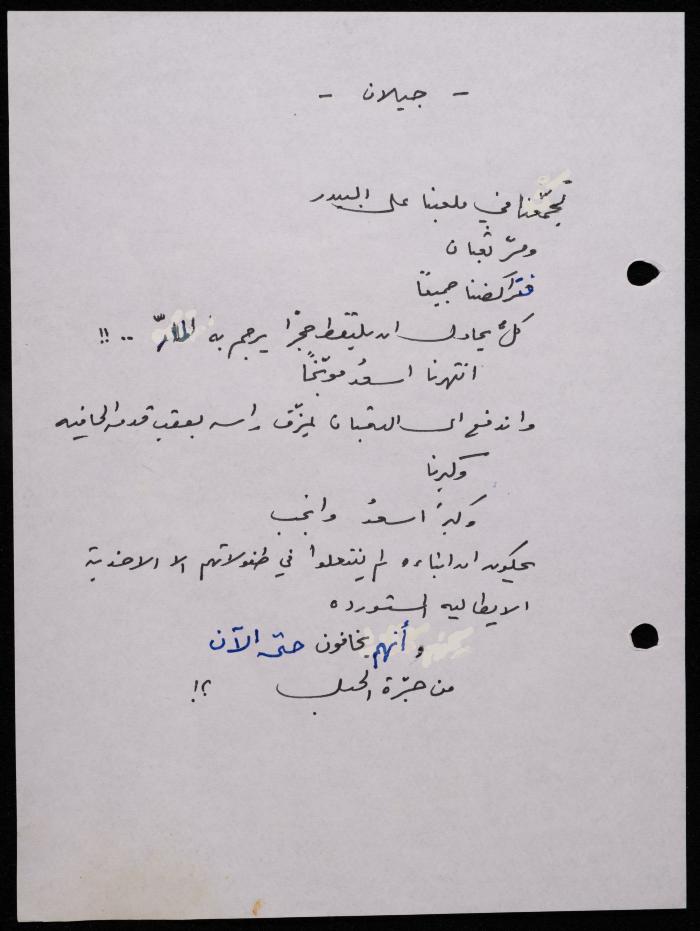 - جيلان -
تجمّعنا في ملعبنا على البيدر
ومرّ ثعبان
فتراكضنا جميعًا
كلٌ يحاول ان يلتقط حجرًا يرجم به المارّ .. !!
انتهرنا اسعدُ موبّخًا
واندفع الى الثعبان ليمزّق راسه بعقب قدمه الحافيه
وكبرنا
وكبرَ اسعدُ وانجب
يحكون ان ابناءه لم ينتعلوا في طفولاتهم الا الاحذية
الايطاليه المستورده
وأنهم يخافون حتى الآن
من جرّة الحبل ؟!